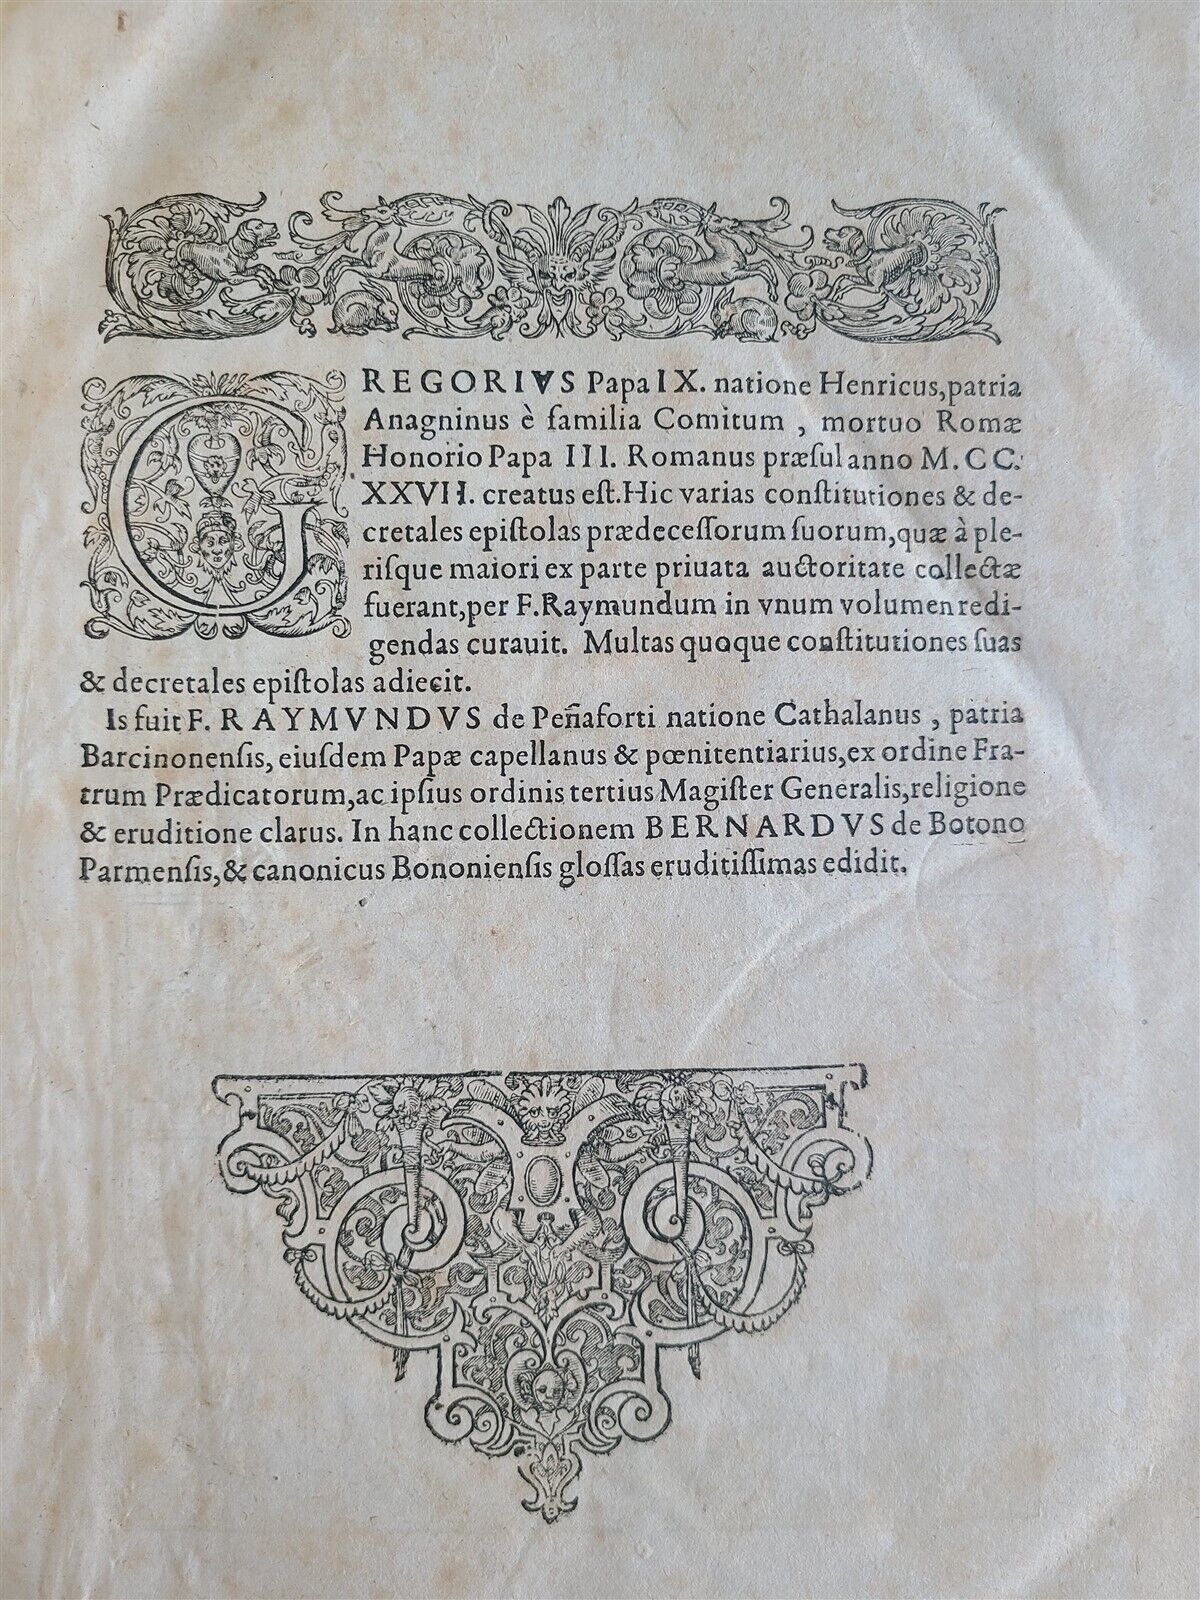 GREGORIVS Papa IX. natione Henricus, patria
Anagninus è familia Comitum, mortuo Romæ
Honorio Papa III. Romanus præſul anno M. CC.
XXVII. creatus eſt. Hic varias conſtitutiones & de-
cretales epiſtolas prædeceſſorum ſuorum, quæ à ple-
riſque maiori ex parte priuata auctoritate collectæ
fuerant, per F. Raymundum in vnum volumen redi-
gendas curauit. Multas quoque conſtitutiones ſuas
& decretales epiſtolas adiecit.
Is fuit F. RAYMVNDVS de Peñaforti natione Cathalanus, patria
Barcinonenſis, eiuſdem Papæ capellanus & pœnitentiarius, ex ordine Fra-
trum Prædicatorum, ac ipſius ordinis tertius Magiſter Generalis, religione
& eruditione clarus. In hanc collectionem BERNARDVS de Botono
Parmenſis, & canonicus Bononienſis gloſſas eruditiſſimas edidit.